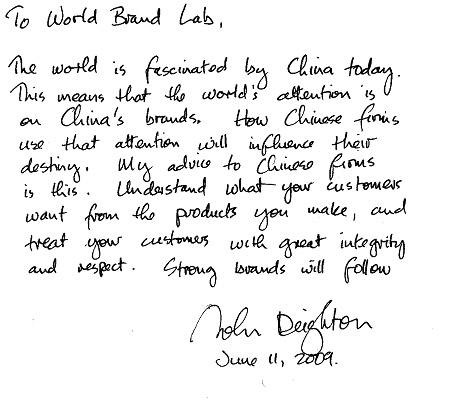 To World Brand Lab,
The world is fascinated by China today.
This means that the world's attention is
on China's brands. How Chinese firms
use that attention will influence their
destiny. My advice to Chinese firms
is this. Understand what your customers
want from the products you make, and
treat your customers with great integrity
and respect. Strong brands will follow
John Deighton
June 11, 2009.